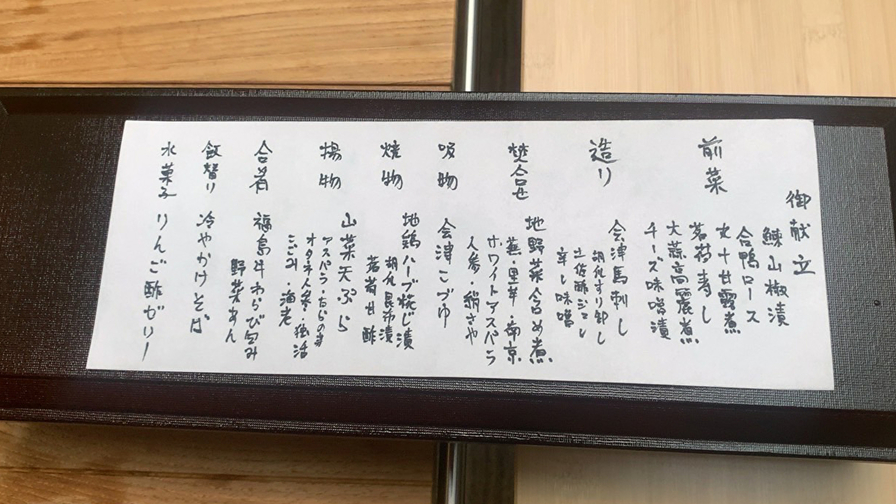 御献立
前菜
鰊山椒漬
合鴨ロース
丸十甘露煮
茗荷寿し
大蒜高麗煮
チーズ味噌漬
造り
会津馬刺し
胡瓜すり卸し
土佐酢ジュレ
辛し味噌
焚合せ
地野菜含め煮
蕪・里芋・南京
ホワイトアスパラ
人参・絹さや
吸物
会津こづゆ
焼物
地鶏ハーブ挽じ漬
胡瓜昆布漬
茗荷甘酢
揚物
山菜天ぷら
アスパラ・たらの芽
オタネ人参・独活
こごみ・海老
合肴
福島牛わらび包み
野菜あん
飯替り
冷やかけそば
水菓子
りんご酢ゼリー